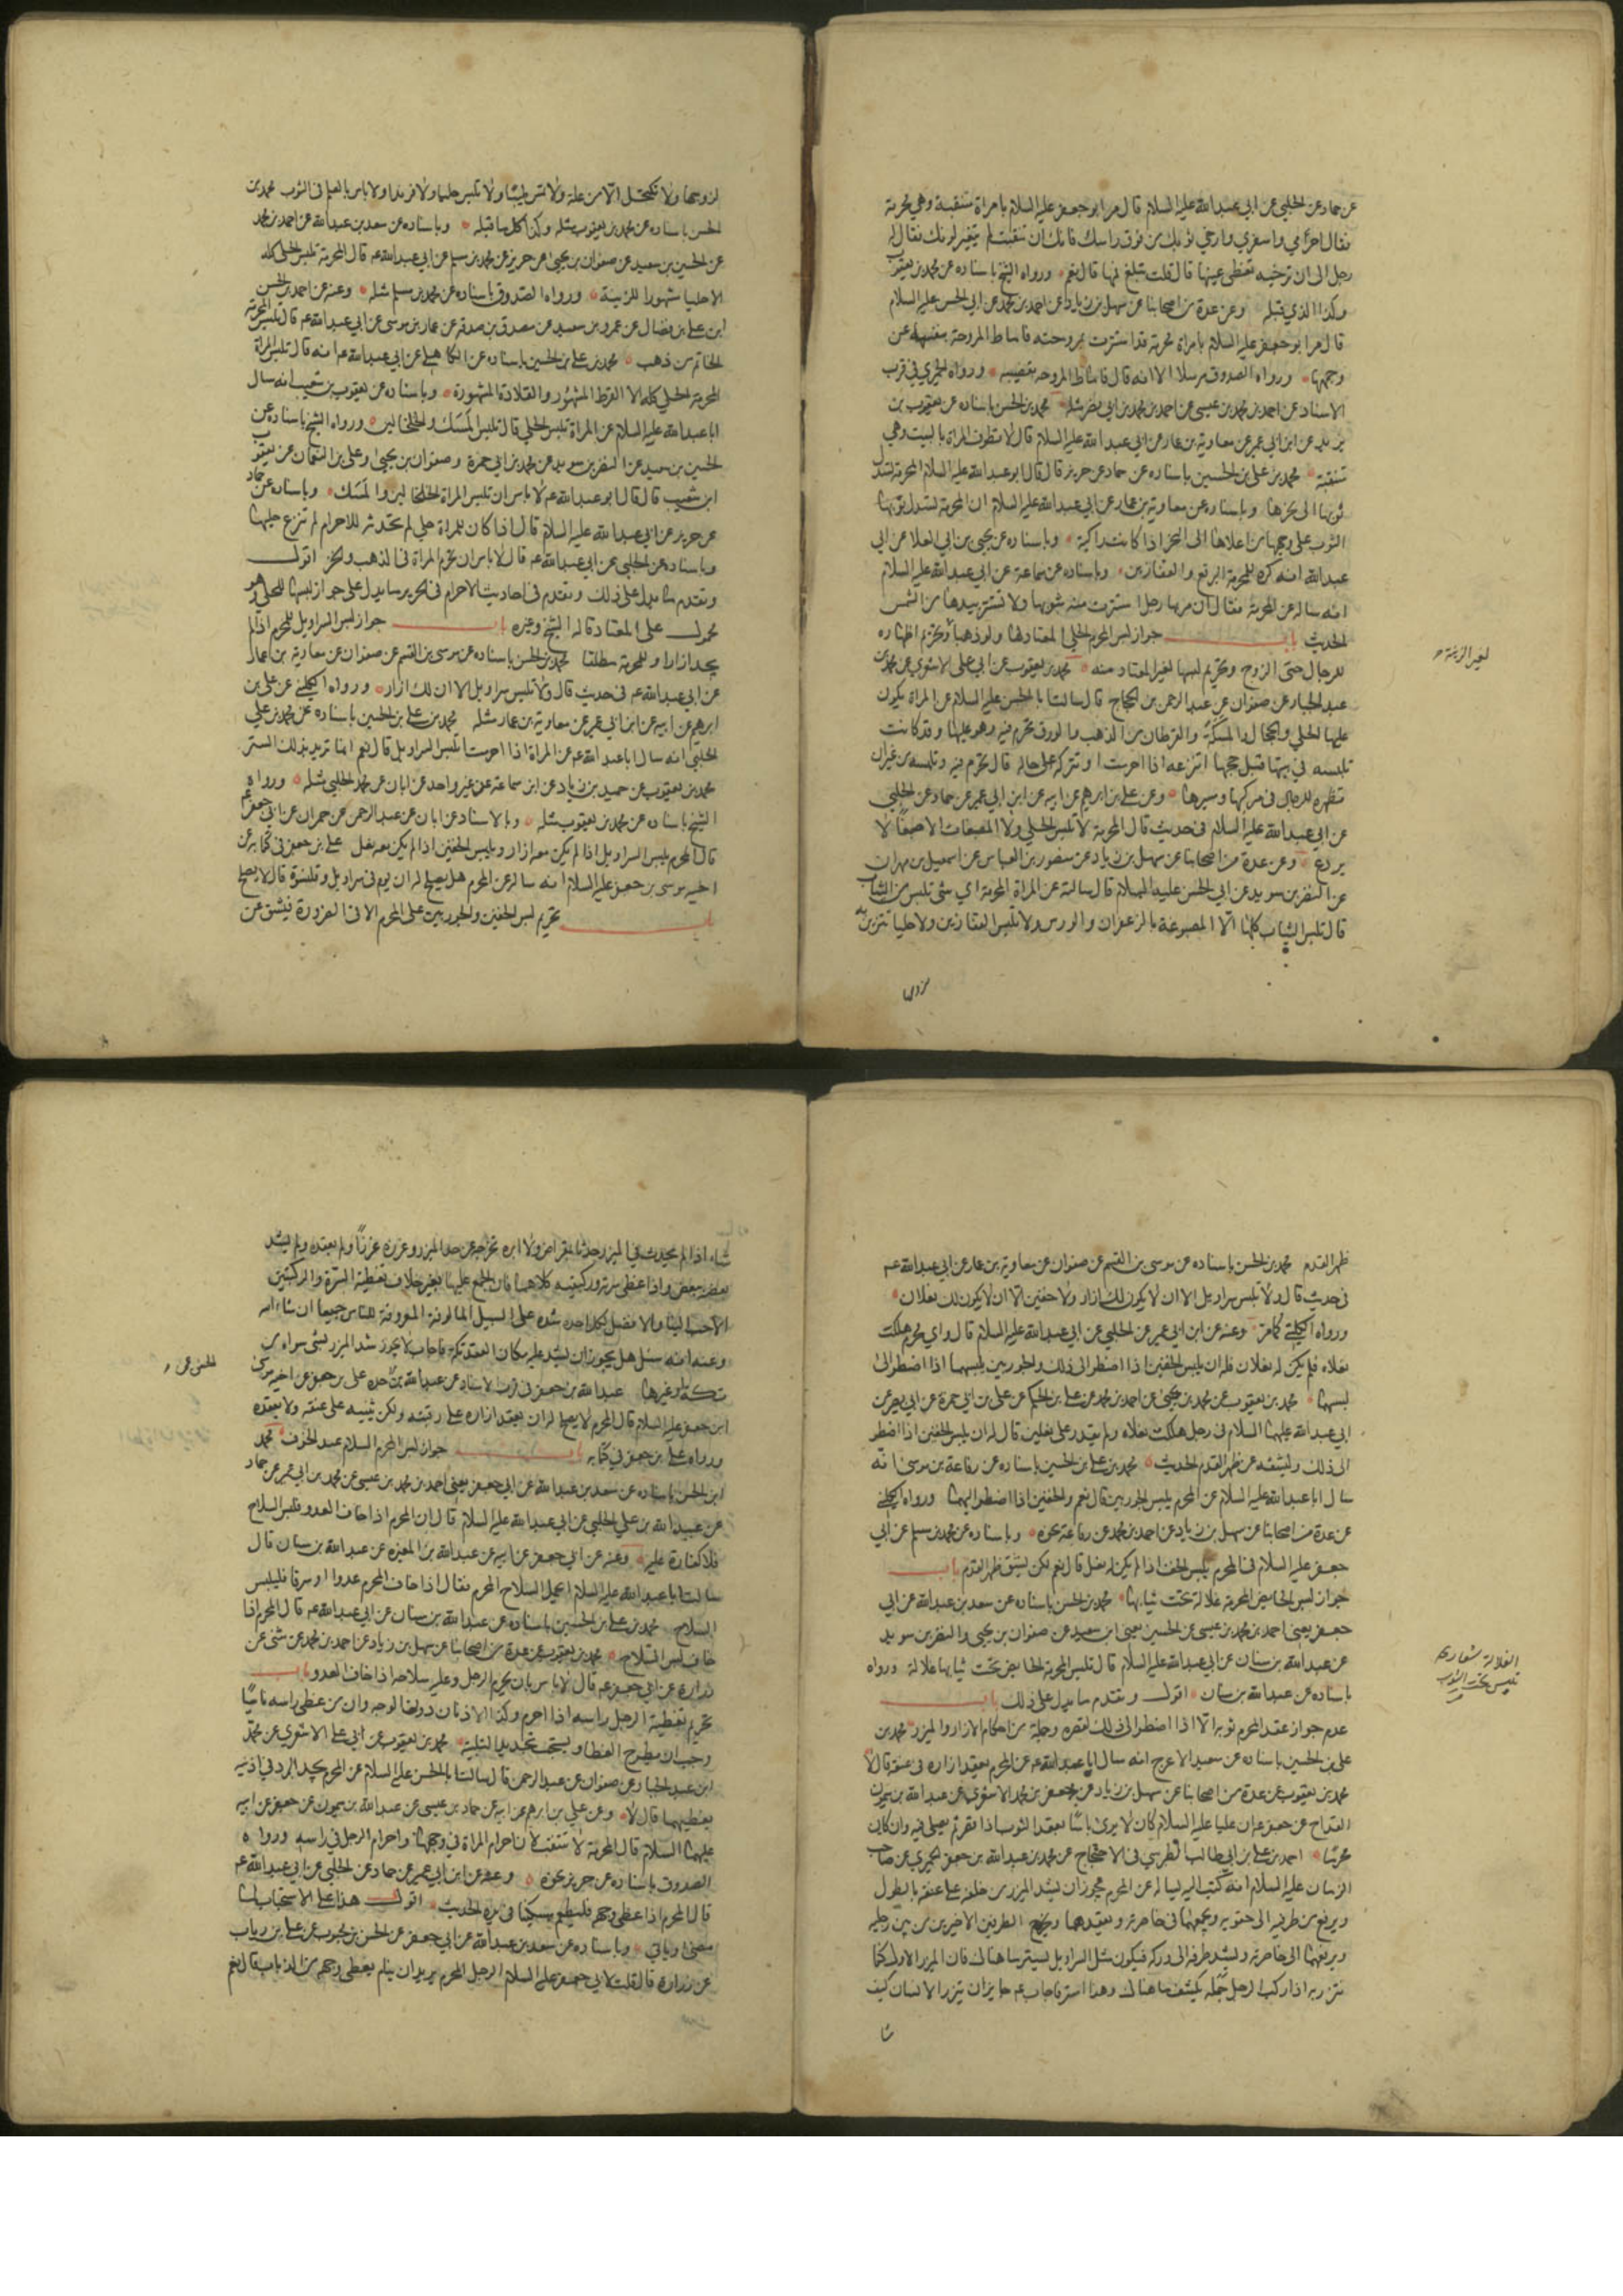 عن حماد عن الحلبي عن ابي عبدالله عليه السلام قال مر ابو جعفر عليه السلام بامراة متنقبة وهي محرمة
فقال احرمي واسفري وارخي ثوبك من فوق راسك فانك ان تنقبت لم يتغير لونك فقال له
رجل الى اين ترخيه تغطي عينيها قال قلت تبلغ فمها قال نعم ورواه الشيخ باسناده عن محمد بن يعقوب
وكذا الذي قبله وعن عدة من اصحابنا عن سهل بن زياد عن احمد بن محمد عن ابي الحسن عليه السلام
قال مر ابو جعفر عليه السلام بامراة محرمة قد استترت بمروحته فاماط المروحة بنفسه عن
وجهها ورواه الصدوق مرسلا الا انه قال فاماط المروحة بقضيبه ورواه الحميري في قرب
الاسناد عن احمد بن محمد بن عيسى عن احمد بن محمد بن ابي نصر مثله محمد بن الحسن باسناده عن يعقوب بن
يزيد عن ابن ابي عمير عن معاوية بن عمار عن ابي عبدالله عليه السلام قال لا تطوف المراة بالبيت وهي
متنقبة محمد بن علي بن الحسين باسناده عن حماد عن حريز قال قال ابو عبدالله عليه السلام المحرمة تسدل
ثوبها الى نحرها وباسناده عن معاوية بن عمار عن ابي عبدالله عليه السلام ان المحرمة تسدل ثوبها
الثوب على وجهها من اعلاها الى النحر اذا كانت راكبة وباسناده عن يحيى بن ابي العلا عن ابي
عبدالله انه كره للمحرمة البرقع والقفازين وباسناده عن سماعة عن ابي عبدالله عليه السلام
انه ساله عن المحرمة فقال ان مر بها رجل استترت منه بثوبها ولا تستتر بيدها من الشمس
الحديث باب جواز لبس المحرم الحلي المعتاد لها ولو ذهبا وتحريم اظهاره
للرجال حتى الزوج وتحريم لبسها لغير المعتاد منه محمد بن يعقوب عن ابي علي الاشعري عن محمد بن
عبد الجبار عن صفوان عن عبد الرحمن بن الحجاج قال سالت ابا الحسن عليه السلام عن المراة يكون
عليها الحلي والخلخال والمسكة والقرطان من الذهب والورق تحرم فيه وهو عليها وقد كانت
تلبسه في بيتها قبل حجها اتنزعه اذا احرمت او تتركه على حاله قال تحرم فيه وتلبسه من غير ان
تظهره للرجال في مركبها ومسيرها وعن علي بن ابرهيم عن ابيه عن ابن ابي عمير عن حماد عن الحلبي
عن ابي عبدالله عليه السلام في حديث قال المحرمة لا تلبس الحلي ولا المصبغات الا صبغا لا
يردع وعن عدة من اصحابنا عن سهل بن زياد عن منصور بن العباس عن اسمعيل بن مهران
عن النضر بن سويد عن ابي الحسن عليه السلام قال سالته عن المراة المحرمة اي شي تلبس من الثياب
قال تلبس الثياب كلها الا المصبوغة بالزعفران والورس ولا تلبس القفازين ولا حليا تتزين به
لزوجها
لغير الزينة
لزوجها ولا تكتحل الا من علة ولا تمس طيبا ولا تلبس حليا ولا فرندا ولا باس بالعلم في الثوب محمد بن
الحسن باسناده عن محمد بن يعقوب مثله وكذا كل ما قبله وباسناده عن سعد بن عبدالله عن احمد بن محمد
عن الحسين بن سعيد عن صفوان بن يحيى عن حريز عن محمد بن مسلم عن ابي عبدالله عه قال المحرمة تلبس الحلي كله
الا حليا مشهورا للزينة ورواه الصدوق باسناده عن محمد بن مسلم مثله وعنه عن احمد بن الحسن
ابن علي بن فضال عن عمرو بن سعيد عن مصدق بن صدقة عن عمار بن موسى عن ابي عبدالله عه قال تلبس المحرمة
الخاتم من ذهب محمد بن علي بن الحسين باسناده عن الكاهلي عن ابي عبدالله عه انه قال تلبس المراة
المحرمة الحلي كله الا القرط المشهور والقلادة المشهورة وباسناده عن يعقوب بن شعيب انه سال
ابا عبدالله عليه السلام عن المراة تلبس الحلي قال تلبس المسك والخلخالين ورواه الشيخ باسناده عن
الحسين بن سعيد عن النضر بن سويد عن محمد بن ابي حمزة وصفوان بن يحيى وعلي بن النعمان عن يعقوب
ابن شعيب قال قال ابو عبدالله عه لا باس ان تلبس المراة الخلخالين والمسك وباسناده عن حماد
عن حريز عن ابي عبدالله عليه السلام قال اذا كان للمراة حلي لم تحدثه للاحرام لم تنزع حليها
وباسناده عن الحلبي عن ابي عبدالله عه قال لا باس ان تحرم المراة في الذهب والخز اقول
وتقدم ما يدل على ذلك وتقدم في احاديث الاحرام في الحرير ما يدل على جواز لبسها للحلي وهو
محمول على المعتاد قاله الشيخ وغيره باب جواز لبس السراويل للمحرم اذا لم
يجد ازارا وللمحرمة مطلقا محمد بن الحسن باسناده عن موسى بن القسم عن صفوان عن معاوية بن عمار
عن ابي عبدالله عه في حديث قال ولا تلبس سراويل الا ان لك ازار ورواه الكليني عن علي بن
ابرهيم عن ابيه عن ابن ابي عمير عن معاوية بن عمار مثله محمد بن علي بن الحسين باسناده عن محمد بن علي
الحلبي انه سال ابا عبدالله عه عن المراة اذا احرمت اتلبس السراويل قال نعم انما تريد بذلك الستر
محمد بن يعقوب عن حميد بن زياد عن ابن سماعة عن غير واحد عن ابان عن محمد الحلبي مثله ورواه
الشيخ باسناده عن محمد بن يعقوب مثله وبالاسناد عن ابان عن عبد الرحمن عن حمران عن ابي جعفر عه
قال المحرم يلبس السراويل اذا لم يكن معه ازار ويلبس الخفين اذا لم يكن معه نعل علي بن جعفر في كتابه عن
اخيه موسى بن جعفر عليه السلام انه ساله عن المحرم هل يصلح له ان يوم في سراويل وقلنسوة قال لا يصلح
باب تحريم لبس الخفين والجوربين على المحرم الا في الضرورة فيشق عن
ظهر القدم محمد بن الحسن باسناده عن موسى بن القسم عن صفوان عن معاوية بن عمار عن ابي عبدالله عه
في حديث قال ولا تلبس سراويل الا ان لا يكون لك ازار ولا خفين الا ان لا يكون لك نعلان
ورواه الكليني كما مر وعنه عن ابن ابي عمير عن الحلبي عن ابي عبدالله عليه السلام قال واي محرم هلكت
نعلاه فلم يكن له نعلان فله ان يلبس الخفين اذا اضطر الى ذلك والجوربين يلبسهما اذا اضطر الى
لبسهما محمد بن يعقوب عن محمد بن يحيى عن احمد بن محمد عن علي بن الحكم عن علي بن ابي حمزة عن ابي بصير عن
ابي عبدالله عليهما السلام في رجل هلكت نعلاه ولم يقدر على نعلين قال له ان يلبس الخفين اذا اضطر
الى ذلك وليشقه عن ظهر القدم الحديث محمد بن علي بن الحسين باسناده عن رفاعة بن موسى انه
سال ابا عبدالله عليه السلام عن المحرم يلبس الجوربين قال نعم والخفين اذا اضطر اليهما ورواه الكليني
عن عدة من اصحابنا عن سهل بن زياد عن احمد بن محمد عن رفاعة نحوه وباسناده عن محمد بن مسلم عن ابي
جعفر عليه السلام في المحرم يلبس الخف اذا لم يكن له نعل قال نعم لكن يشق ظهر القدم باب
جواز لبس الحايض المحرمة غلالة تحت ثيابها محمد بن الحسن باسناده عن سعد بن عبدالله عن ابي
جعفر يعني احمد بن محمد بن عيسى عن الحسين يعني ابن سعيد عن صفوان بن يحيى والنضر بن سويد
عن عبدالله بن سنان عن ابي عبدالله عليه السلام قال تلبس المحرمة الحايض تحت ثيابها غلالة ورواه
باسناده عن عبدالله بن سنان اقول وتقدم ما يدل على ذلك باب
عدم جواز عقد المحرم ثوبه الا اذا اضطر الى ذلك لقصره وجملة من احكام الازار والمئزر محمد بن
علي بن الحسين باسناده عن سعيد الاعرج انه سال ابا عبدالله عه عن المحرم يعقد ازاره في عنقه قال لا
محمد بن يعقوب عن عدة من اصحابنا عن سهل بن زياد عن جعفر بن محمد الاشعري عن عبدالله بن ميمون
القداح عن جعفر عه ان عليا عليه السلام كان لا يرى باسا بعقد الثوب اذا قصر ثم يصلي فيه وان كان
محرما احمد بن علي بن ابي طالب الطبرسي في الاحتجاج عن محمد بن عبدالله بن جعفر الحميري عن صاحب
الزمان عليه السلام انه كتب اليه يساله عن المحرم يجوز ان يشد الميزر من خلفه على عنقه بالطول
ويرفع من طرفيه الى حقويه ويجمعهما في خاصرته ويعقدهما ويخرج الطرفين الاخيرين من بين رجليه
ويرفعهما الى خاصرته ويشد طرفه الى وركه فيكون مثل السراويل يستر ما هناك فان الميزر الاول كنا
نتزر به اذا ركب الرجل جمله يكشف ما هناك وهذا استر فاجاب عه جايز ان يتزر الانسان كيف
شا
الغلالة شعار
تلبس تحت الثوب
شاء اذا لم يحدث في الميزر حدثا بمقراض ولا ابرة تخرجه عن حد الميزر وغرزه غرزا ولم يعقده ولم يشد
بعضه ببعض واذا غطى سرته وركبتيه كلاهما فان المجمع عليه بغير خلاف تغطية السرة والركبتين
والاحب الينا والافضل لكل احد شده على السبيل المالوفة المعروفة للناس جميعا ان شاء الله
وعنه انه سئل هل يجوز ان يشد عليه مكان العقد تكة فاجاب لا يجوز شد الميزر بشي سواه من
تكة او غيرها عبدالله بن جعفر في قرب الاسناد عن عبدالله بن الحسن عن جده علي بن جعفر عن اخيه موسى
ابن جعفر عليه السلام قال المحرم لا يصلح له ان يعقد ازاره على رقبته ولكن يثنيه على عنقه ولا يعقده
ورواه علي بن جعفر في كتابه باب جواز لبس المحرم السلاح عند الخوف محمد
ابن الحسن باسناده عن سعد بن عبدالله عن ابي جعفر يعني احمد بن محمد بن عيسى عن محمد بن ابي عمير عن حماد
عن عبيدالله بن علي الحلبي عن ابي عبدالله عليه السلام قال ان المحرم اذا خاف العدو فلبس السلاح
فلا كفارة عليه وعنه عن ابي جعفر عن ابيه عن عبدالله بن المغيرة عن عبدالله بن سنان قال
سالت ابا عبدالله عليه السلام ايحمل السلاح المحرم فقال اذا خاف المحرم عدوا او سرقا فليلبس
السلاح محمد بن علي بن الحسين باسناده عن عبدالله بن سنان عن ابي عبدالله عه قال المحرم اذا
خاف لبس السلاح محمد بن يعقوب عن عدة من اصحابنا عن سهل بن زياد عن احمد بن محمد عن مثنى عن
زرارة عن ابي جعفر عه قال لا باس بان يحرم الرجل وعليه سلاحه اذا خاف العدو باب
تحريم تغطية الرجل راسه اذا احرم وكذا الاذنان دون الوجه وان من غطى راسه ناسيا
وجب ان يطرح الغطا ويستحب تجديد التلبية محمد بن يعقوب عن ابي علي الاشعري عن محمد
ابن عبد الجبار عن صفوان عن عبد الرحمن قال سالت ابا الحسن عليه السلام عن المحرم يجد البرد في اذنيه
يغطيهما قال لا وعن علي بن ابرهيم عن ابيه عن حماد بن عيسى عن عبدالله بن ميمون عن جعفر عن ابيه
عليهما السلام قال المحرمة لا تتنقب لان احرام المراة في وجهها واحرام الرجل في راسه ورواه
الصدوق باسناده عن حريز نحوه وعنه عن ابن ابي عمير عن حماد عن الحلبي عن ابي عبدالله عه
قال المحرم اذا غطى وجهه فليطعم مسكينا في يده الحديث اقول هذا على الاستحباب لما
مضى وياتي وباسناده عن سعد بن عبدالله عن ابي جعفر عن الحسن بن محبوب عن علي بن رياب
عن زرارة قال قلت لابي جعفر عليه السلام الرجل المحرم يريد ان ينام يغطي وجهه من الذباب قال نعم